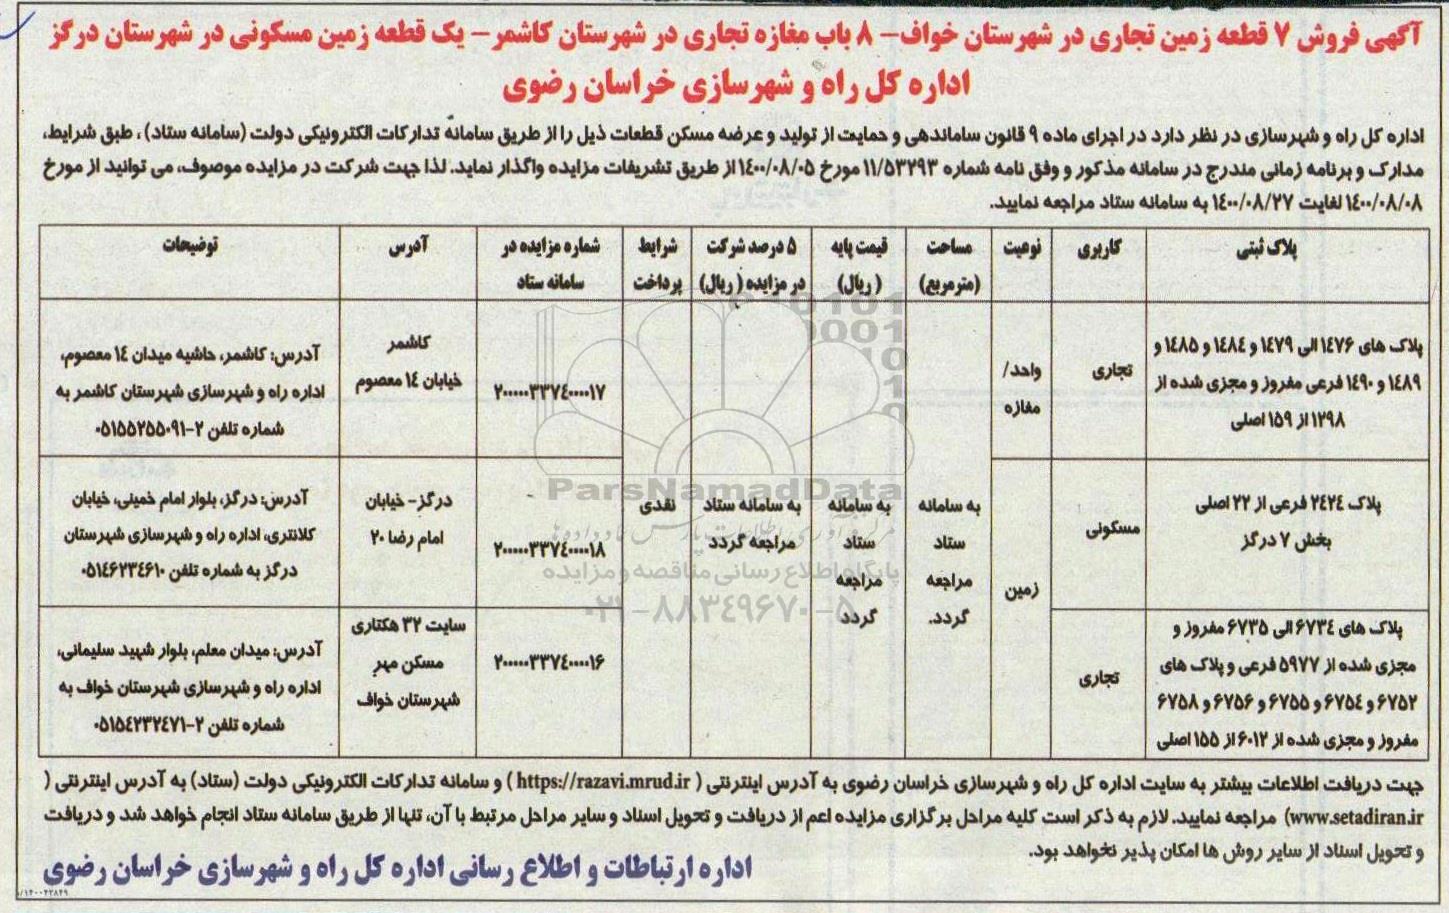 آگهی فروش ۷ قطعه زمین تجاری در شهرستان خواف- ۸ باب مغازه تجاری در شهرستان کاشمر- یک قطعه زمین مسکونی در شهرستان درگز
اداره کل راه و شهرسازی خراسان رضوی
اداره کل راه و شهرسازی در نظر دارد در اجرای ماده ۹ قانون ساماندهی و حمایت از تولید و عرضه مسکن قطعات ذیل را از طریق سامانه تدارکات الکترونیکی دولت (سامانه ستاد)، طبق شرایط،
مدارک و برنامه زمانی مندرج در سامانه مذکور و وفق نامه شماره ۱۱/۵۳۲۹۳ مورخ ۱۴۰۰/۰۸/۰۵ از طریق تشریفات مزایده واگذار نماید. لذا جهت شرکت در مزایده موصوف، می توانید از مورخ
۱۴۰۰/۰۸/۰۸ لغایت ۱۴۰۰/۰۸/۲۷ به سامانه ستاد مراجعه نمایید.
پلاک ثبتی
کاربری
نوعیت
مساحت
(مترمربع)
قیمت پایه
(ریال)
۵ درصد شرکت
در مزایده (ریال)
شرایط
پرداخت
شماره مزایده در
سامانه ستاد
آدرس
توضیحات
پلاک های ۱۴۷۶ الی ۱۴۷۹ و ۱۴۸۴ و ۱۴۸۵ و
۱۴۸۹ و ۱۴۹۰ فرعی مفروز و مجزی شده از
۱۲۹۸ از ۱۵۹ اصلی
تجاری
واحد/
مغازه
۲۰۰۰۰۰۳۳۷۴۰۰۰۰۱۷
کاشمر
خیابان ۱۴ معصوم
آدرس: کاشمر، حاشیه میدان ۱۴ معصوم،
اداره راه و شهرسازی شهرستان کاشمر به
شماره تلفن ۲-۰۵۱۵۵۲۵۵۰۹۱
پلاک ۲۴۲۴ فرعی از ۲۲ اصلی
بخش ۷ درگز
مسکونی
زمین
به سامانه
ستاد
مراجعه
گردد.
به سامانه
ستاد
مراجعه
گردد
به سامانه ستاد
مراجعه گردد
نقدی
۲۰۰۰۰۰۳۳۷۴۰۰۰۰۱۸
درگز- خیابان
امام رضا ۲۰
آدرس: درگز، بلوار امام خمینی، خیابان
کلانتری، اداره راه و شهرسازی شهرستان
درگز به شماره تلفن ۰۵۱۴۶۲۳۴۶۱۰
پلاک های ۶۷۳۴ الی ۶۷۳۵ مفروز و
مجزی شده از ۵۹۷۷ فرعی و پلاک های
۶۷۵۲ و ۶۷۵۴ و ۶۷۵۵ و ۶۷۵۶ و ۶۷۵۸
مفروز و مجزی شده از ۶۰۱۲ از ۱۵۵ اصلی
تجاری
۲۰۰۰۰۰۳۳۷۴۰۰۰۰۱۶
سایت ۳۲ هکتاری
مسکن مهر
شهرستان خواف
آدرس: میدان معلم، بلوار شهید سلیمانی،
اداره راه و شهرسازی شهرستان خواف به
شماره تلفن ۲-۰۵۱۵۴۲۳۲۴۷۱
ParsNamadData
پایگاه اطلاع رسانی مناقصه و مزایده
۰۲۱-۸۸۳۴۹۶۷۰-۵
جهت دریافت اطلاعات بیشتر به سایت اداره کل راه و شهرسازی خراسان رضوی به آدرس اینترنتی (https://razavi.mrud.ir) و سامانه تدارکات الکترونیکی دولت (ستاد) به آدرس اینترنتی (
www.setadiran.ir) مراجعه نمایید. لازم به ذکر است کلیه مراحل برگزاری مزایده اعم از دریافت و تحویل اسناد و سایر مراحل مرتبط با آن، تنها از طریق سامانه ستاد انجام خواهد شد و دریافت
و تحویل اسناد از سایر روش ها امکان پذیر نخواهد بود.
اداره ارتباطات و اطلاع رسانی اداره کل راه و شهرسازی خراسان رضوی